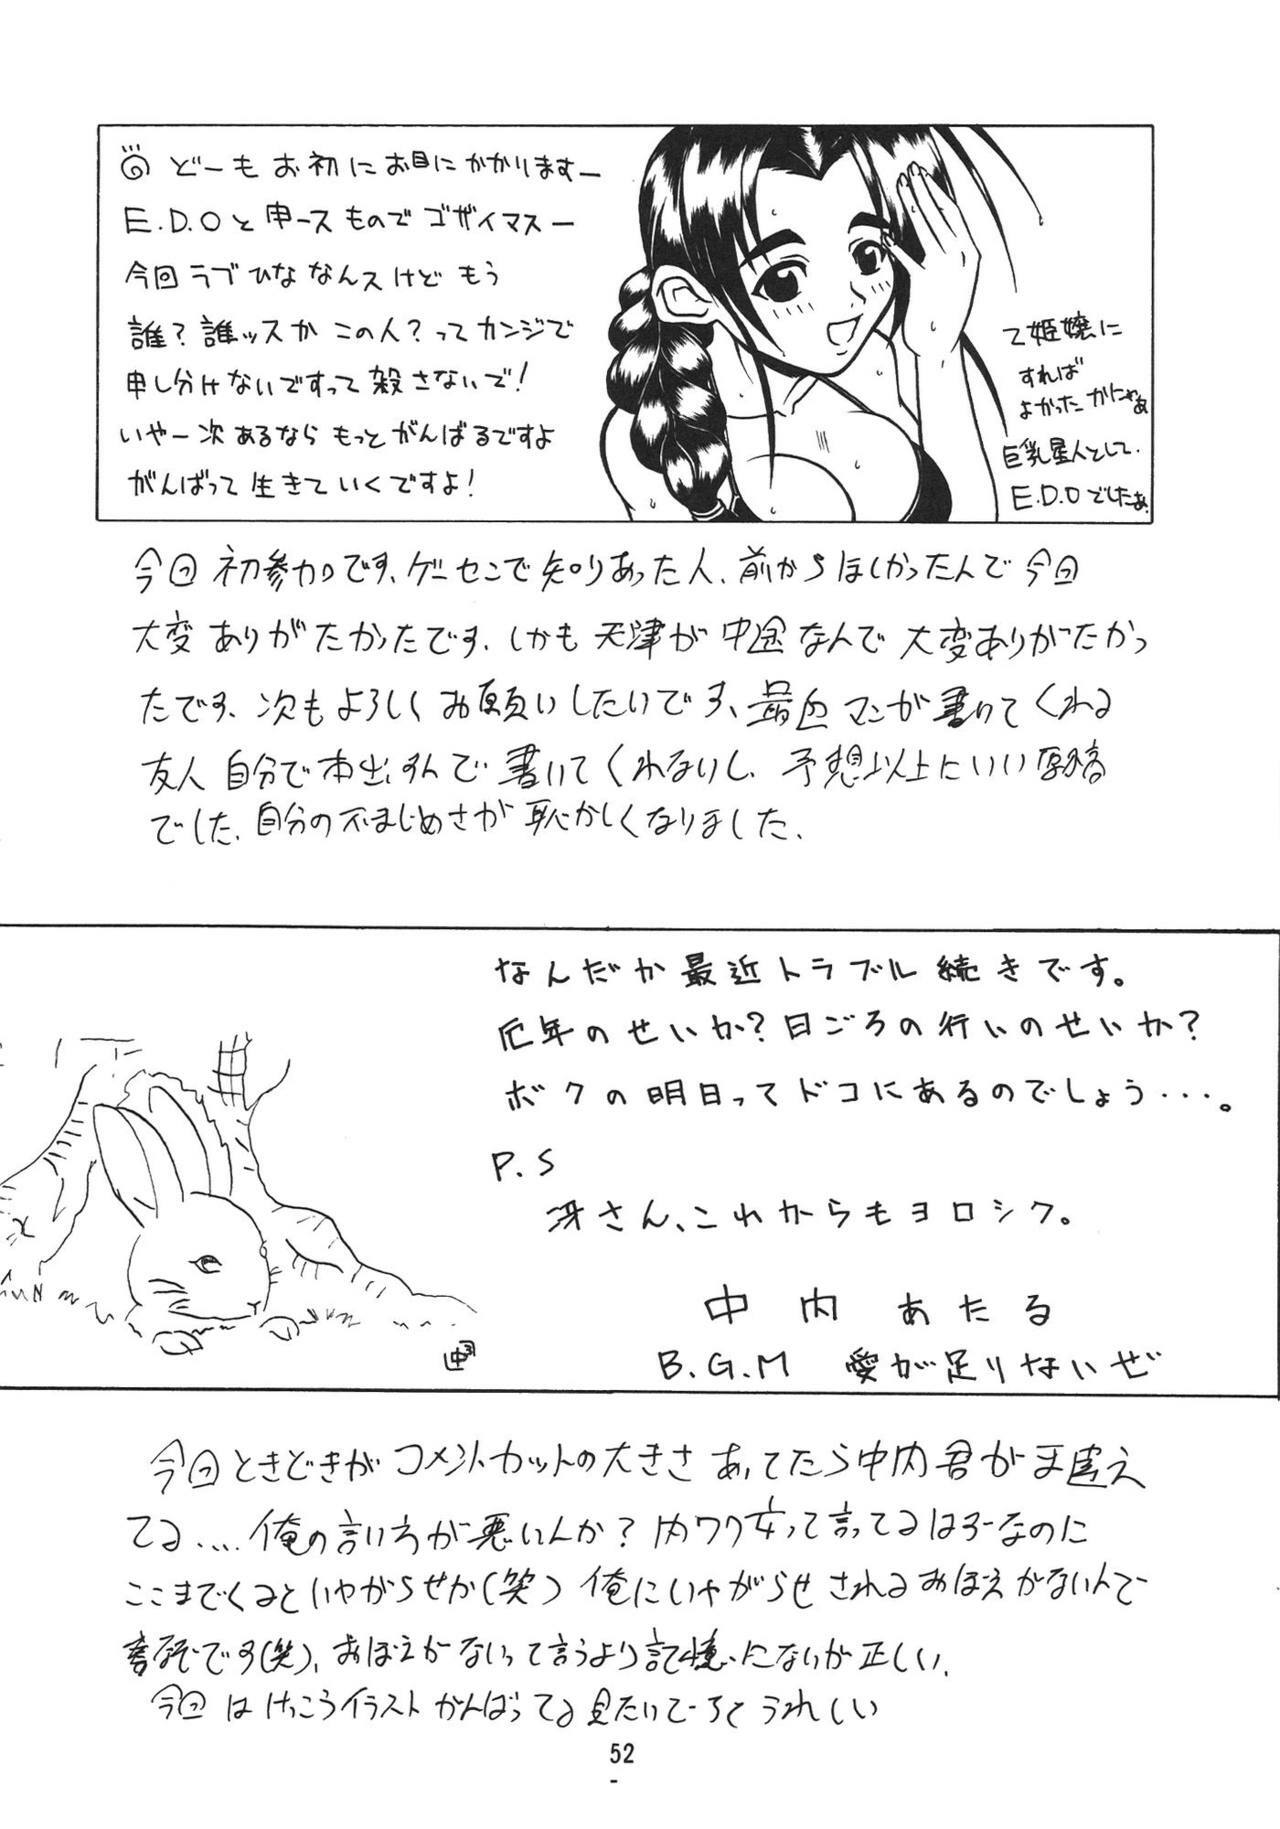 どーも お初に お目に かかりますー
E.D.Oと 申ース もので ゴザイマスー
今回 ラブひな なんスけど もう
誰？誰ッスか この人？って カンジで
申し分けないですって 殺さないで！
いやー 次 あるなら もっと がんばるですよ
がんばって 生きて いくですよ！
乙姫嬢に
すれば
よかったかにゃあ
巨乳星人として.
E.D.O でしたぁ.
今回 初参加です、ゲーセンで 知りあった人、前からほしかったんで 今回
大変ありがたかったです、しかも 天津が 中途なんで 大変ありがたかっ
たです、次もよろしく お願いしたいです、最近 マンガ書いてくれる
友人 自分で本出すんで 書いてくれないし、予想以上にいい原稿
でした、自分の不まじめさが 恥かしくなりました、
なんだか最近トラブル続きです。
厄年のせいか？日ごろの行いのせいか？
ボクの明日ってドコにあるのでしょう・・・。
P.S
冴さん、これからもヨロシク。
中内 あたる
B.G.M 愛が足りないぜ
今回 ときどきが コメントカットの大きさ あってたら 中内君が 間違え
てる.... 俺の言い方が悪いんか？ 内ワク 女って言ってるはずなのに
ここまでくると いやがらせか(笑) 俺にいやがらせされるおぼえがないんで
なぞです(笑)、おぼえがないって言うより記憶にないが正しい、
今回は けっこう イラスト がんばってる 見たいで ちと うれしい
52